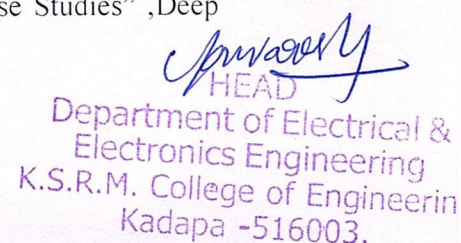 se Studies" ,Deep
HEAD
Department of Electrical &
Electronics Engineering
K.S.R.M. College of Engineerin
Kadapa -516003.